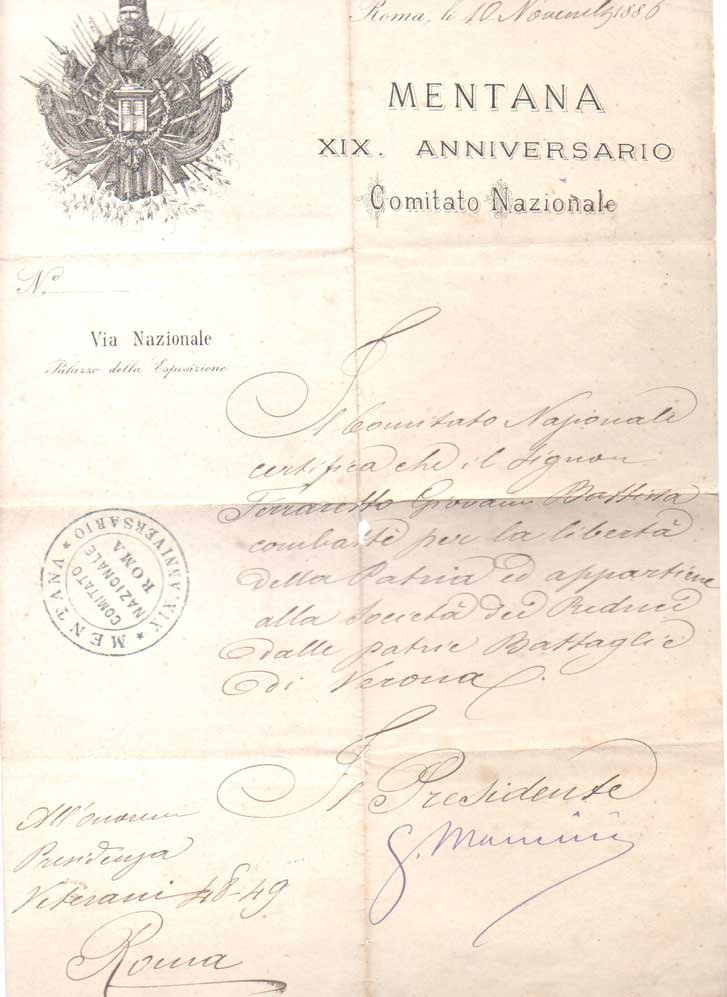 Roma, li 10 Novembre 1886
MENTANA
XIX. ANNIVERSARIO
Comitato Nazionale
N.º
Via Nazionale
Palazzo della Esposizione
Il Comitato Nazionale
certifica che il Signor
Ferraretto Giovanni Battista
combatté per la libertà
della Patria ed appartiene
alla Società dei Reduci
dalle patrie Battaglie
di Verona.
★ MENTANA ★ XIX. ANNIVERSARIO
COMITATO
NAZIONALE
ROMA
Il Presidente
G.
All'onorem
Presidenza
Veterani 48-49
Roma